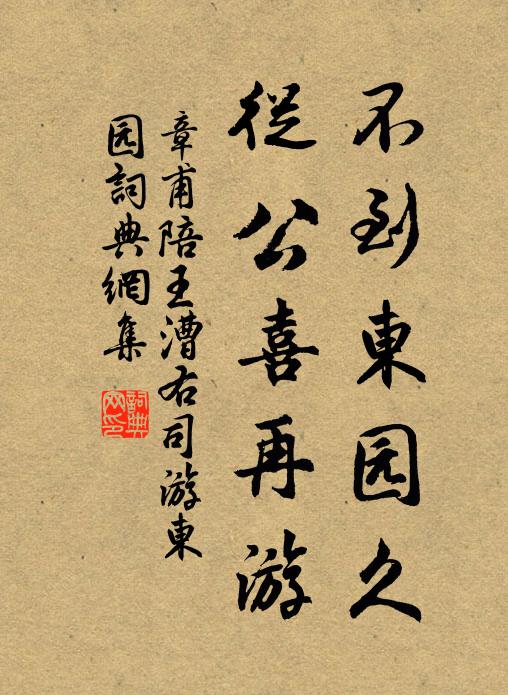 不到東园久
從公喜再游
章甫陪王漕右司游東
园詞典網集
詞典
网印